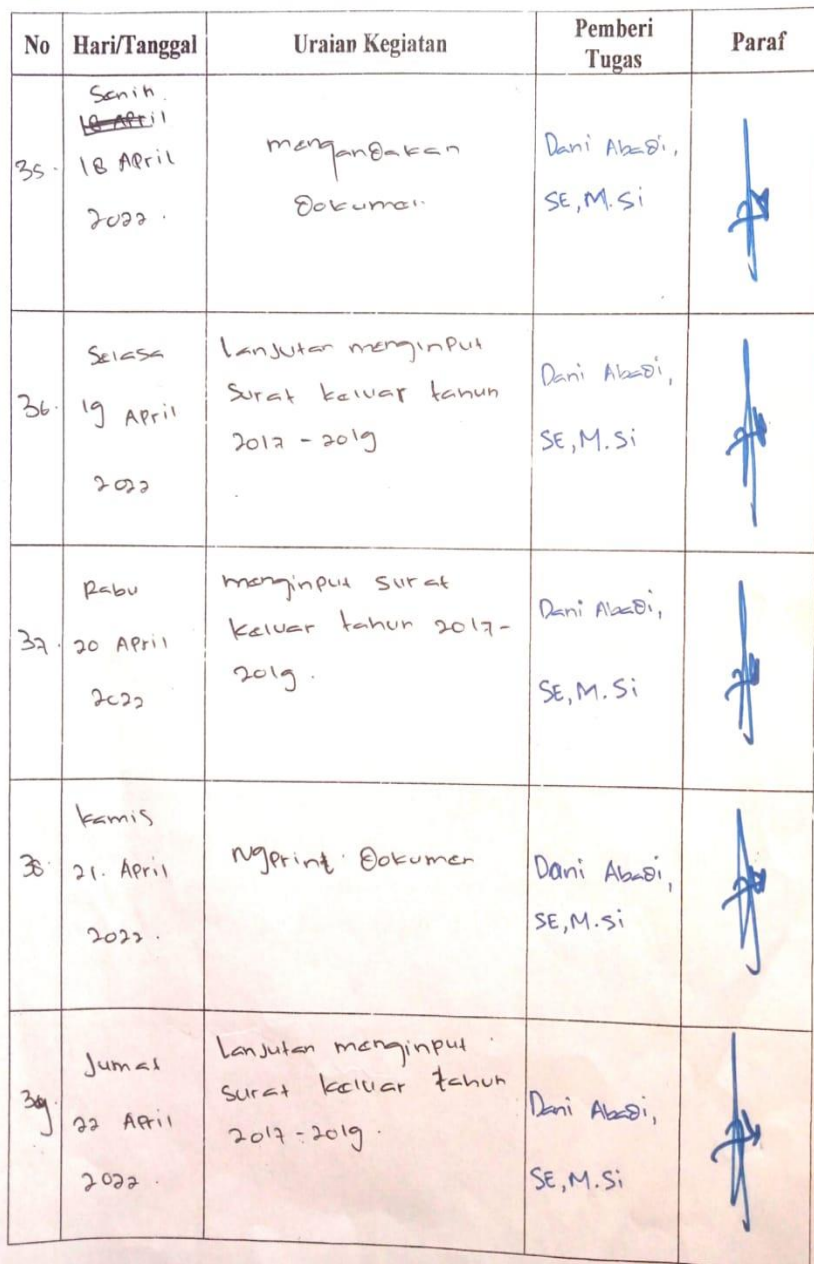 No Hari/Tanggal Uraian Kegiatan Pemberi Tugas Paraf
35.
Senin
18 April
18 April
2022.
mengandakan
Dokumen
Dani Abadi,
SE, M.Si
36.
Selasa
19 April
2022
Lanjutan menginput
surat keluar tahun
2017 - 2019
Dani Abadi,
SE, M.Si
37.
Rabu
20 April
2022
menginput surat
keluar tahun 2017-
2019.
Dani Abadi,
SE, M.Si
38.
Kamis
21. April
2022.
Ngprint Dokumen
Dani Abadi,
SE, M.Si
39.
Jumat
22 April
2022.
Lanjutan menginput
surat keluar tahun
2017-2019.
Dani Abadi,
SE, M.Si